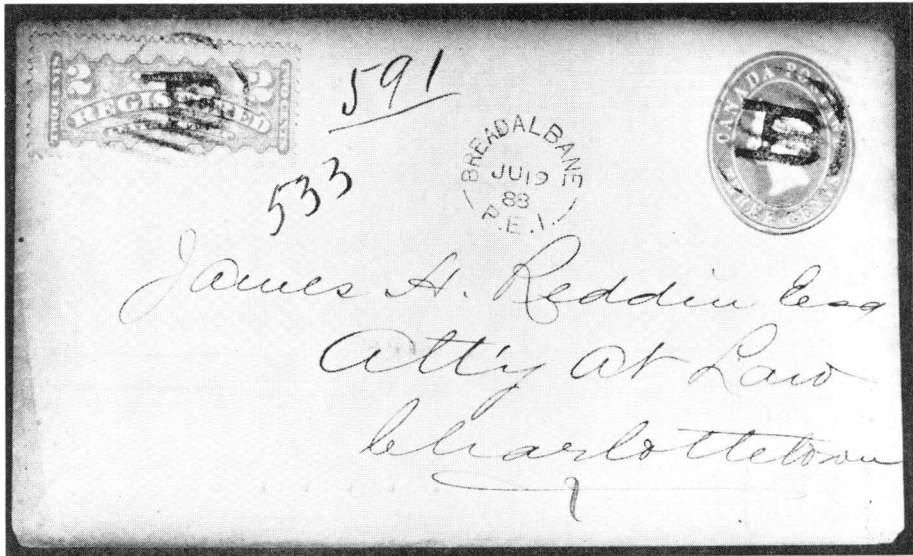 TWO CENTS
2 REGISTERED 2
591
533
BREADALBANE
JU 19
88
P.E.I.
CANADA POSTAGE
THREE CENTS
James H. Reddin Esq
Att'y at Law
Charlottetown